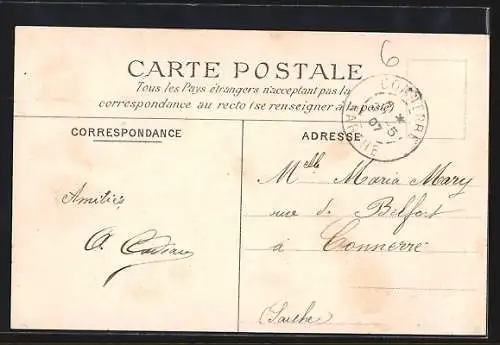 6
CARTE POSTALE
Tous les Pays étrangers n'acceptant pas la
correspondance au recto (se renseigner à la poste)
CORRESPONDANCE
ADRESSE
CONNERRÉ
5
07
SARTHE
Amitiés
A.
Melle Maria Mary
rue de Belfort
à Connerré
(Sarthe)